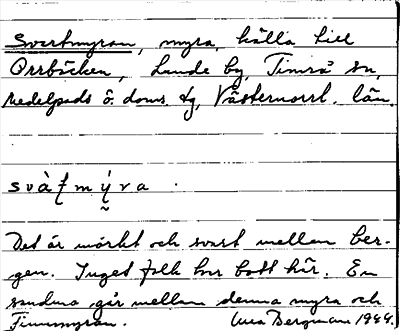 Svartmyran, myra, källa till
Orrbäcken, Lunde by, Timrå sn,
Medelpads ö. doms. dg, Västernorrl. län.
Det är mörkt och svart mellan ber-
gen. Inget folk har bott här. En
går mellan denna myra och
Timmyran. Bergman 1944.